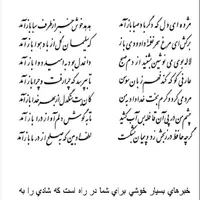 مژده ای دل که دگر باد صبا بازآمد هدهد خوش خبر از طرف سبا بازآمد
برکش ای مرغ سحر نغمه داودی باز که سلیمان گل از باد هوا بازآمد
لاله بوی می نوشین بشنید از دم صبح داغ دل بود به امید دوا بازآمد
عارفی کو که کند فهم زبان سوسن تا بپرسد که چرا رفت و چرا بازآمد
مردمی کرد و کرم بخت خداداد به من کان بت سنگدل از بهر خدا بازآمد
چشم من در پی این قافله بس آب کشید تا به گوش دلم آواز درا بازآمد
گرچه حافظ در رنجش زد و پیمان بشکست لطف او بین که به صلح از در ما بازآمد
خبرهاي بسيار خوشي براي شما در راه است كه شادي را به